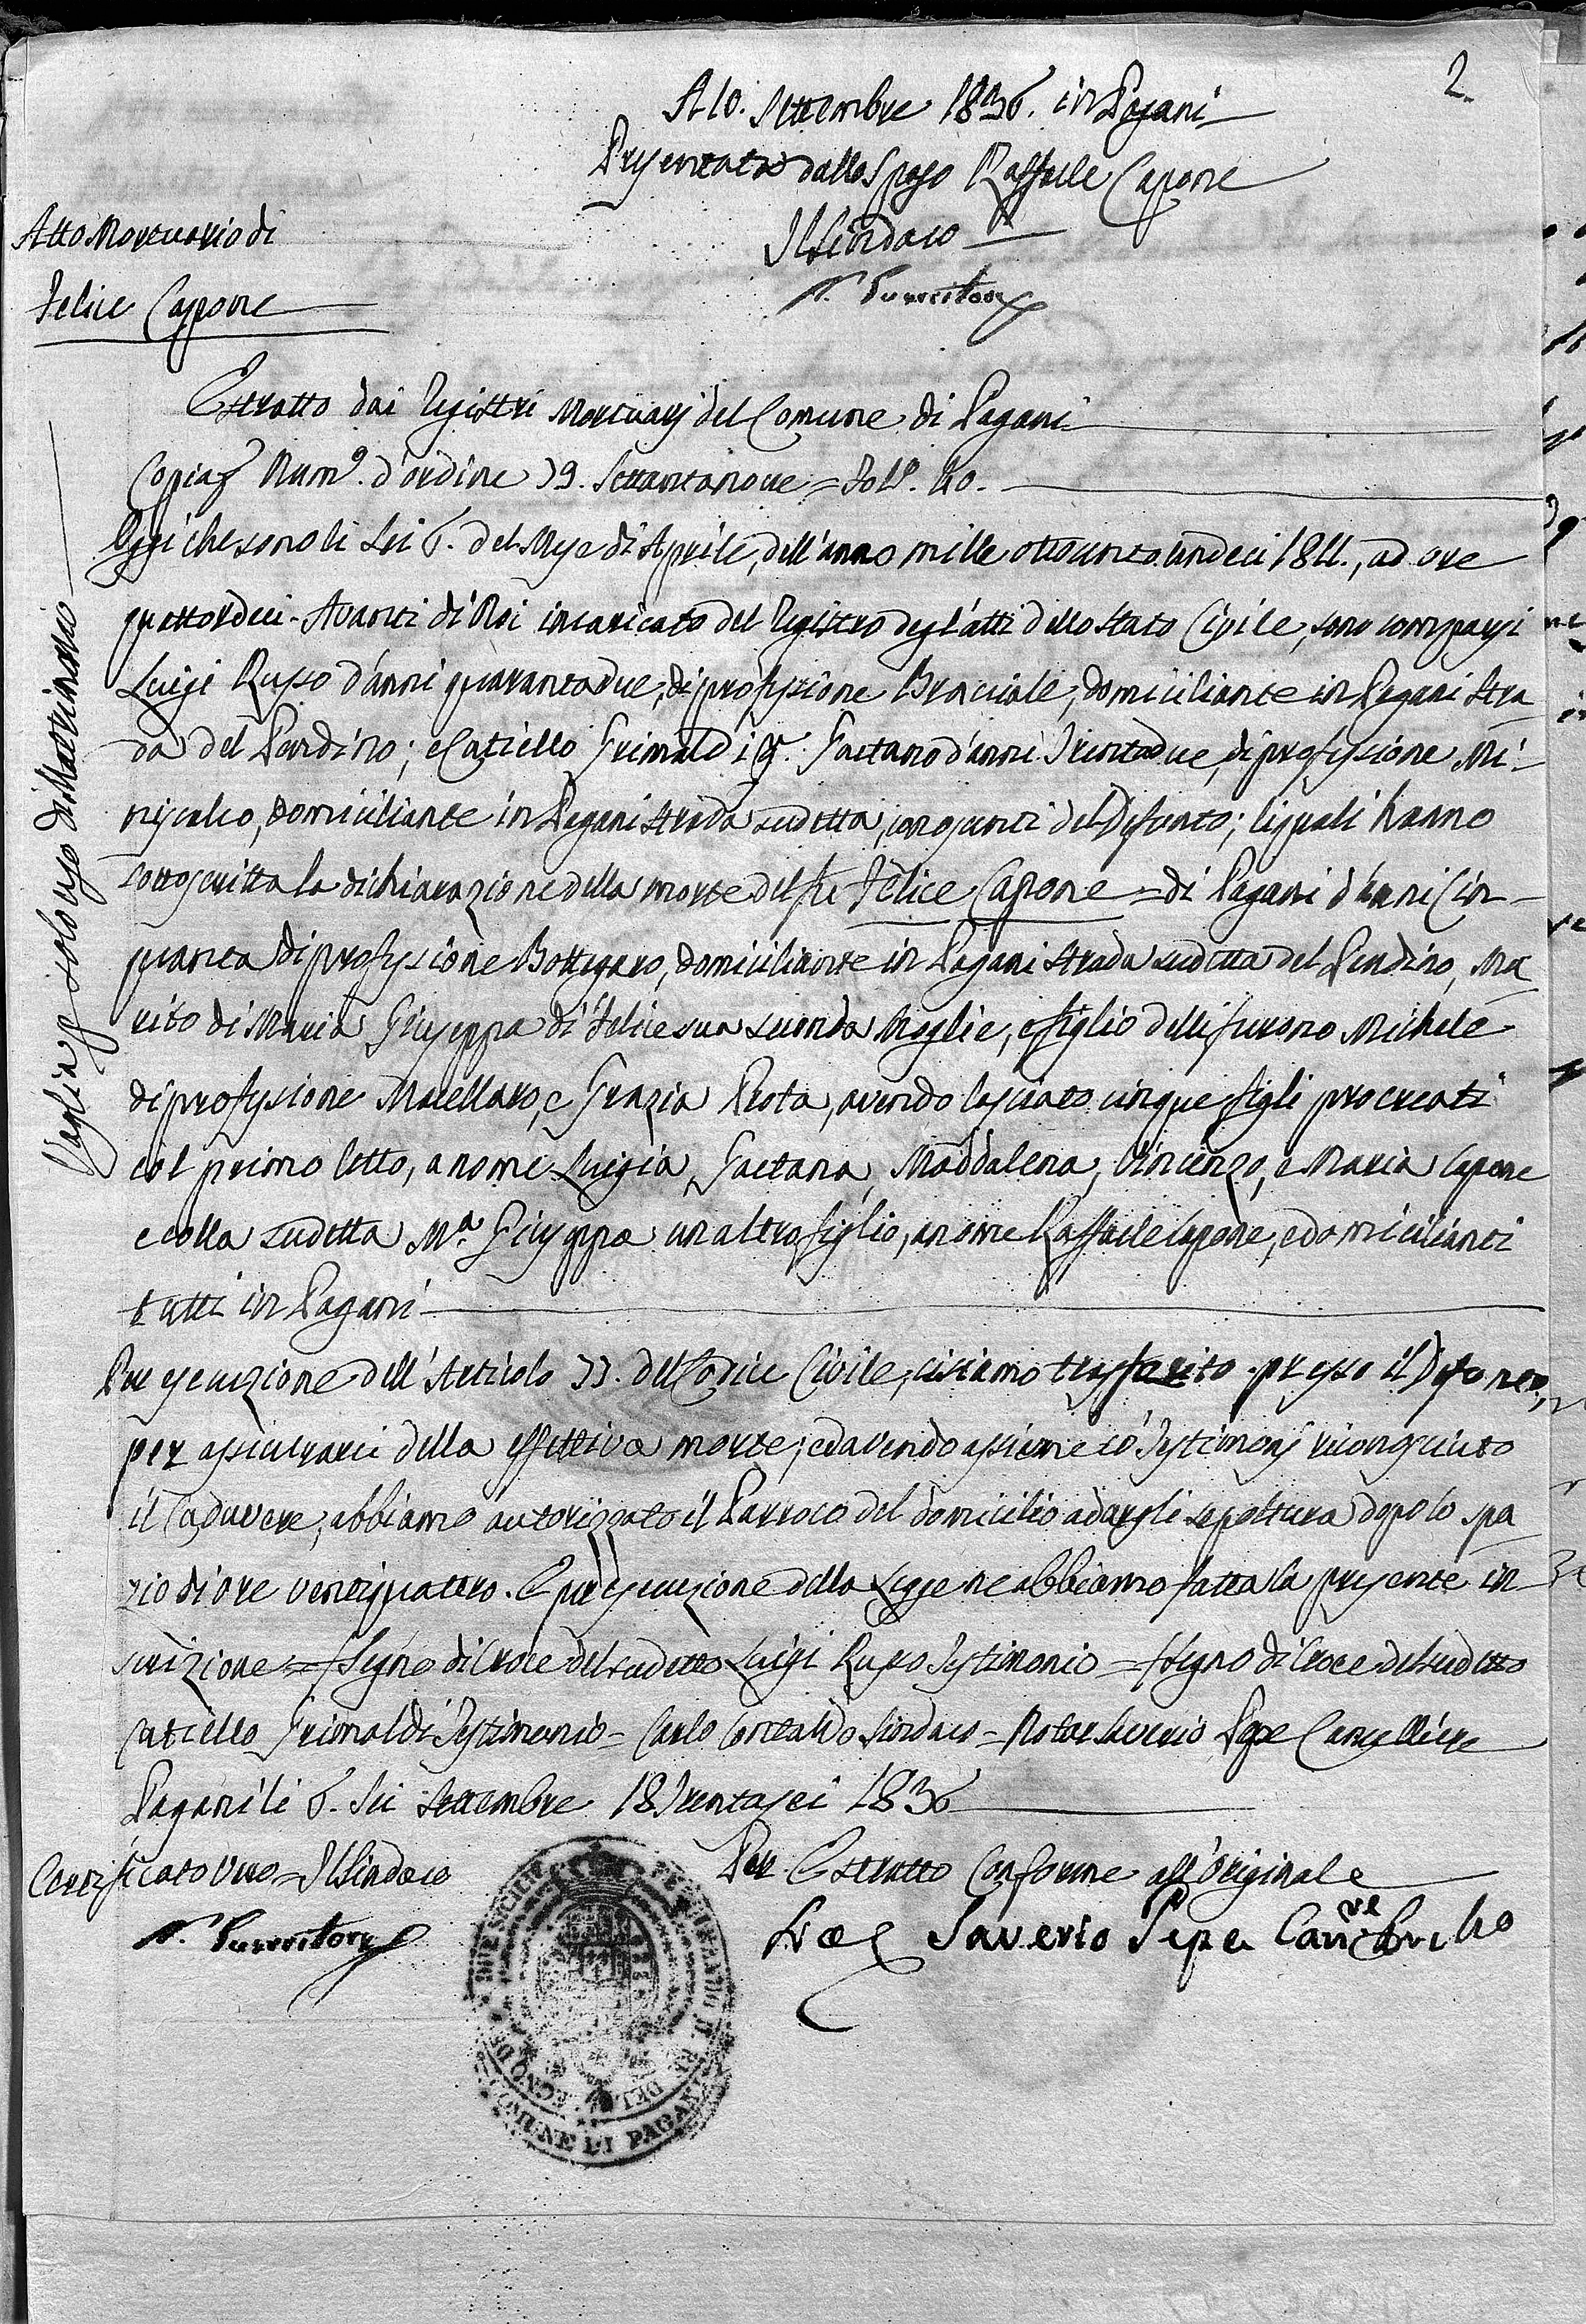 2.
A 10. Settembre 1836. in Pagani
Presentato dallo Sposo Raffaele Capone
Il Sindaco
Atto Mortuario di
Felice Capone
Estratto dai Registri Mortuarj del Comune di Pagani
Copia Num.º d'ordine 79. Settantanove = Fol.º 40.
Oggi che sono li Sei 6. del Mese di Aprile, dell'anno mille ottocento undeci 1811., ad ore
quattordeci. Avanti di Noi incaricato del Registro degl'atti dello stato Civile, sono comparsi
Luigi Russo d'anni quarantadue, di professione Bracciale, domiciliante in Pagani Stra-
da del Pendino; e Catiello Grimaldi q.m Gaetano d'anni Trentadue, di professione Mi-
niscalco, domiciliante in Pagani strada sudetta, congiunti del Defunto; li quali hanno
sottoscritta la dichiarazione della morte del fu Felice Capone = di Pagani d'anni Cin-
quanta di professione Bottegaro, domiciliante in Pagani strada sudetta del Pendino, Ma-
rito di Maria Giuseppa di Felice sua seconda Moglie, e figlio delli furono Michele
di professione Macellaro, e Grazia Prota, avendo lasciato cinque figli procreati
col primo letto, a nome Luigia, Gaetana, Maddalena, Vincenzo, e Maria Capone
e colla sudetta M.a Giuseppa un altro figlio, a nome Raffaele Capone, e domicilianti
tutti in Pagani
Per esecuzione dell'Articolo 77. del Codice Civile, ci siamo trasferito presso il Defonto,
per assicurarci della effettiva morte; ed avendo assieme co' Testimonj riconosciuto
il Cadavere, abbiamo autorizzato il Parroco del domicilio a dargli sepoltura dopo lo spa-
zio di ore ventiquattro. E per esecuzione della Legge ne abbiamo fatta la presente in-
scrizione = Segno di Croce del sudetto Luigi Russo Testimonio = Segno di Croce del sudetto
Catiello Grimaldi Testimonio = Carlo Sindaco = Notar Saverio Pepe Cancelliere
Pagani li 6. Sei Settembre 18Trentasei 1836
Certificato Vero = Il Sindaco
Per Estratto Conforme all'originale
Saverio Pepe Canc.re
Vaglia p solo uso di Matrimonio
COMUNE DI PAGANI